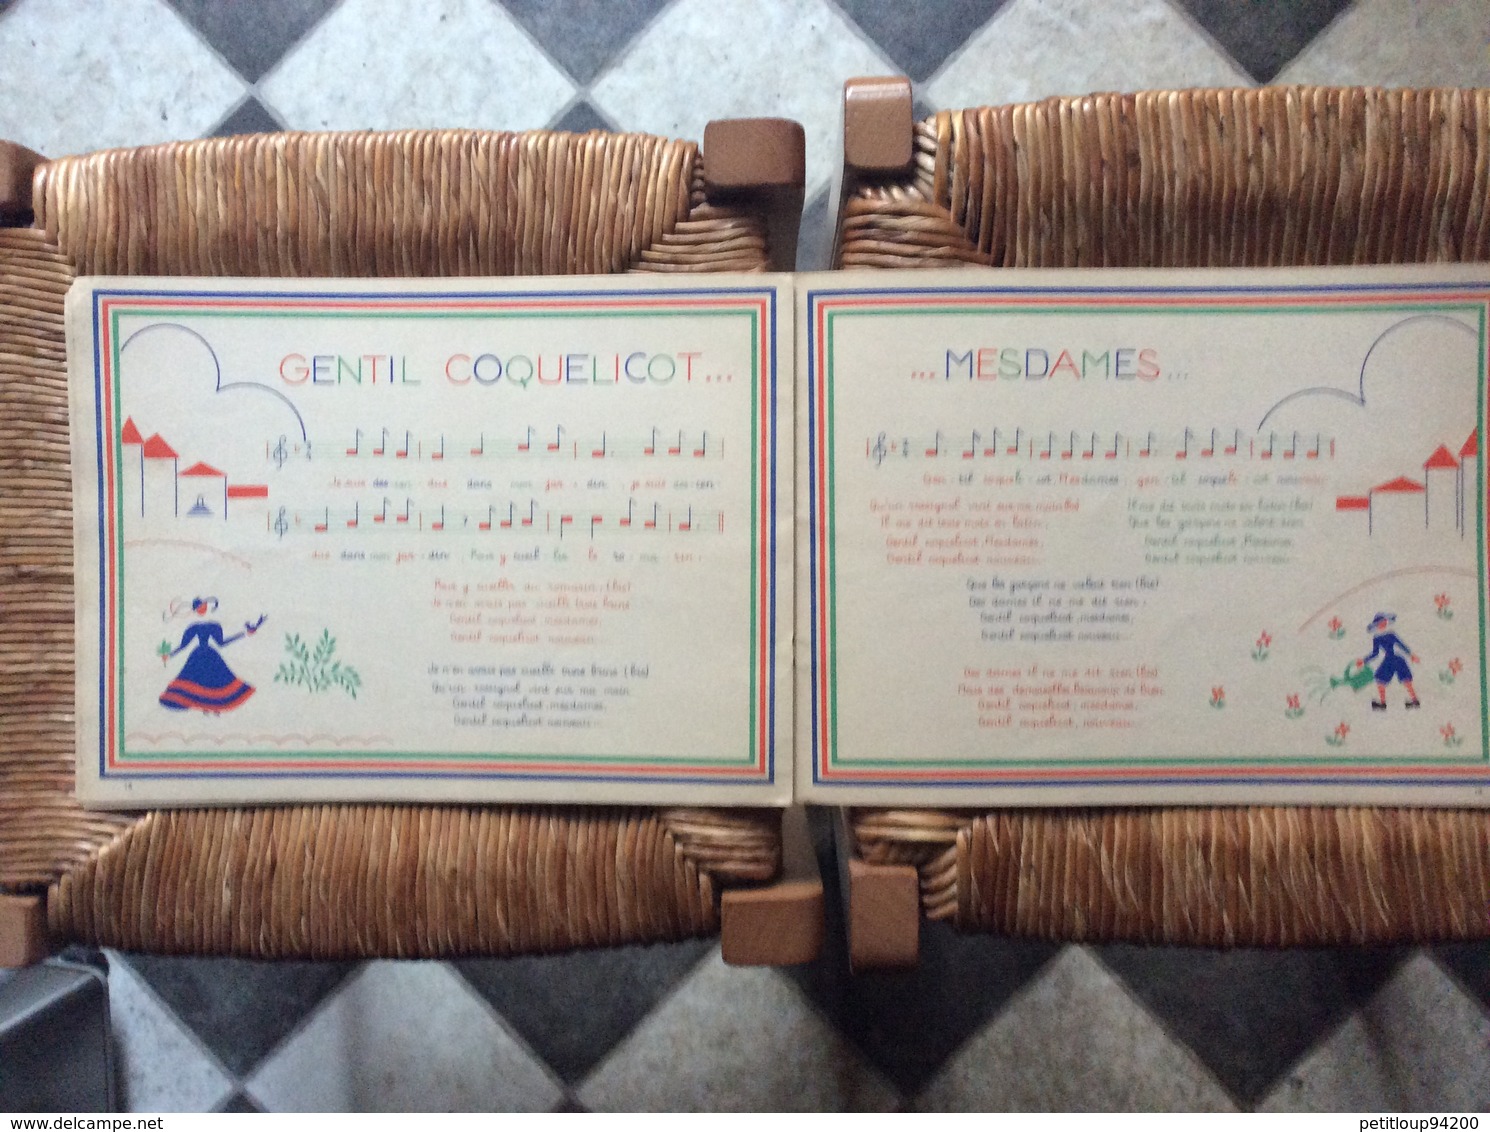 GENTIL COQUELICOT...
Je suis des-cen-due dans mon jar-din, je suis des-cen-
due dans mon jar-din. Pour y cueil-lir le ro-ma-rin.
Pour y cueillir du romarin (bis)
Je n'en avais pas cueilli trois brins
Gentil coquelicot, mesdames,
Gentil coquelicot nouveau...
Je n'en avais pas cueilli trois brins (bis)
Qu'un rossignol vint sur ma main
Gentil coquelicot, mesdames,
Gentil coquelicot nouveau...
14
...MESDAMES...
Gen-til coqueli-cot Mesdames, gen-til coqueli-cot nouveau.
Qu'un rossignol vint sur ma main (bis)
Il me dit trois mots en latin,
Gentil coquelicot, Mesdames,
Gentil coquelicot nouveau...
Il me dit trois mots en latin (bis)
Que les garçons ne valent rien
Gentil coquelicot, Mesdames,
Gentil coquelicot nouveau...
Que les garçons ne valent rien (bis)
Des dames il ne me dit rien;
Gentil coquelicot, mesdames,
Gentil coquelicot nouveau...
Des dames il ne me dit rien (bis)
Mais des demoiselles beaucoup de bien
Gentil coquelicot, mesdames,
Gentil coquelicot, nouveau...
www.delcampe.net
petitloup94200